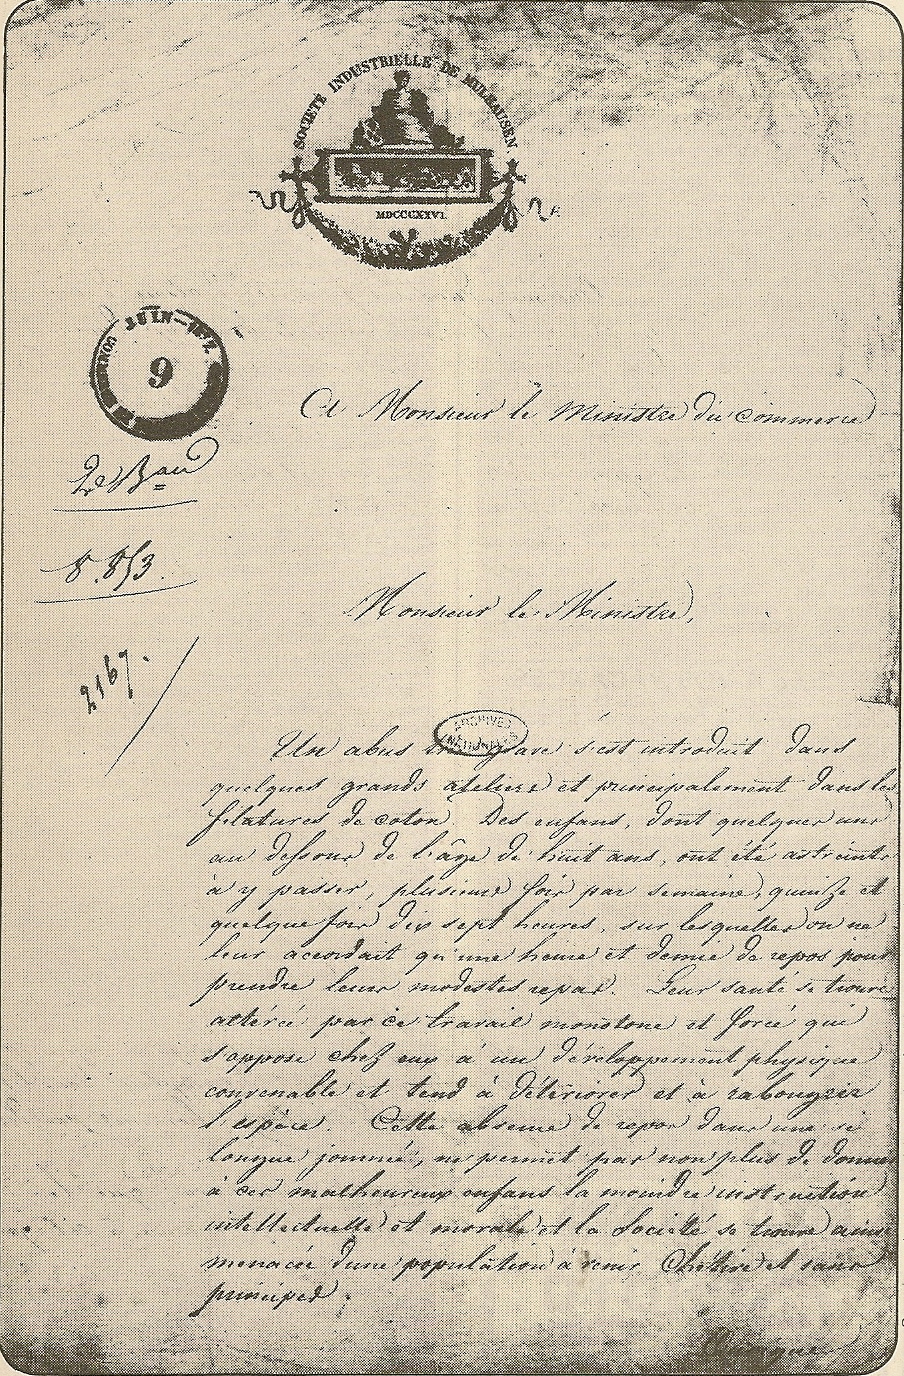 SOCIÉTÉ INDUSTRIELLE DE MULHAUSEN.
MDCCCXXVI.
JUIN
9
2e Bau
8.853.
2167.
A Monsieur le Ministre du Commerce
Monsieur le Ministre,
ARCHIVES NATIONALES
Un abus très grave s'est introduit dans
quelques grands ateliers et principalement dans les
filatures de coton. Des enfans, dont quelques uns
au dessous de l'âge de huit ans, ont été astreints
à y passer, plusieurs fois par semaine, quinze et
quelquefois dix sept heures, sur lesquelles on ne
leur accordait qu'une heure et demie de repos pour
prendre leurs modestes repas. Leur santé se trouve
altérée par ce travail monotone et forcé qui
s'oppose chez eux à un développement physique
convenable et tend à détériorer et à rabougrir
l'espèce. Cette absence de repos dans une si
longue journée, ne permet pas non plus de donner
à ces malheureux enfans la moindre instruction
intellectuelle et morale et la Société se trouve ainsi
menacée d'une population à venir chétive et sans
principes.